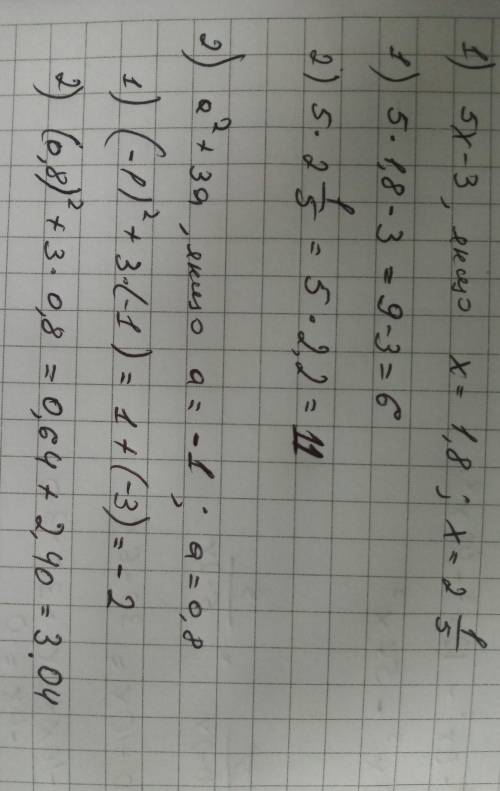 1) 5x-3, якщо x = 1,8; x = 2 1/5
1) 5·1,8-3 = 9-3=6
2) 5·2 1/5 = 5·2,2 = 11
2) a²+3a, якщо a = -1; a = 0,8
1) (-1)²+3·(-1) = 1+(-3) = -2
2) (0,8)²+3·0,8 = 0,64+2,40 = 3.04